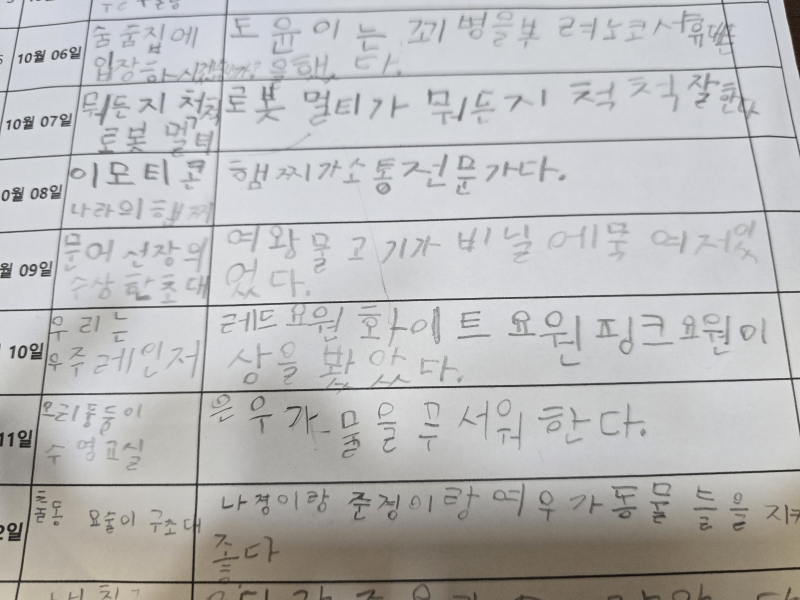 10월 06일
숨 숨집에
입장하시겠습니까?
도윤이는 꾀병을부려노코사휴대폰
을했다.
10월 07일
뭐든지 척척
로봇 멀티
로봇 멀티가 뭐든지 척척잘한다
0월 08일
이모티콘
나라의햄찌
햄찌가소통전문가다.
월 09일
문어 선장의
수상한초대
여왕물고기가 비닐에묵여저있
었다.
10일
우리는
우주레인저
레드요원 화이트 요원 핑크요원이
상을 봤았다.
11일
오리풍둥이
수영교실
은우가 물을 무서워한다.
2일
출동 요술이 구조대
나정이랑 준정이랑 여우가동물들을지켜
줬다